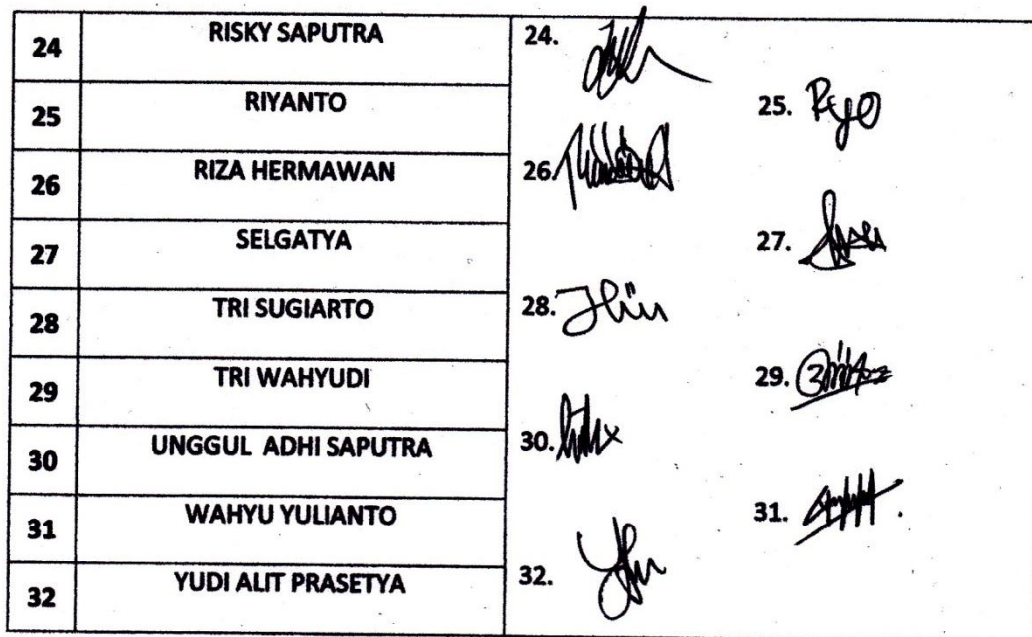 24 RISKY SAPUTRA 24.
25 RIYANTO 25. Ryo
26 RIZA HERMAWAN 26.
27 SELGATYA 27.
28 TRI SUGIARTO 28.
29 TRI WAHYUDI 29.
30 UNGGUL ADHI SAPUTRA 30.
31 WAHYU YULIANTO 31.
32 YUDI ALIT PRASETYA 32.